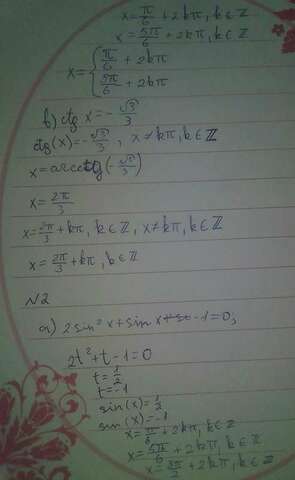 x = π/6 + 2kπ, k ∈ ℤ
x = 5π/6 + 2kπ, k ∈ ℤ
x = { π/6 + 2kπ
5π/6 + 2kπ
в) ctg x = -√3/3
ctg(x) = -√3/3, x ≠ kπ, k ∈ ℤ
x = arcctg(-√3/3)
x = 2π/3
x = 2π/3 + kπ, k ∈ ℤ, x ≠ kπ, k ∈ ℤ
x = 2π/3 + kπ, k ∈ ℤ
N2
a) 2sin²x + sin x - 1 = 0,
2t² + t - 1 = 0
t = 1/2
t = -1
sin(x) = 1/2
sin(x) = -1
x = π/6 + 2kπ, k ∈ ℤ
x = 5π/6 + 2kπ, k ∈ ℤ
x = 3π/2 + 2kπ, k ∈ ℤ